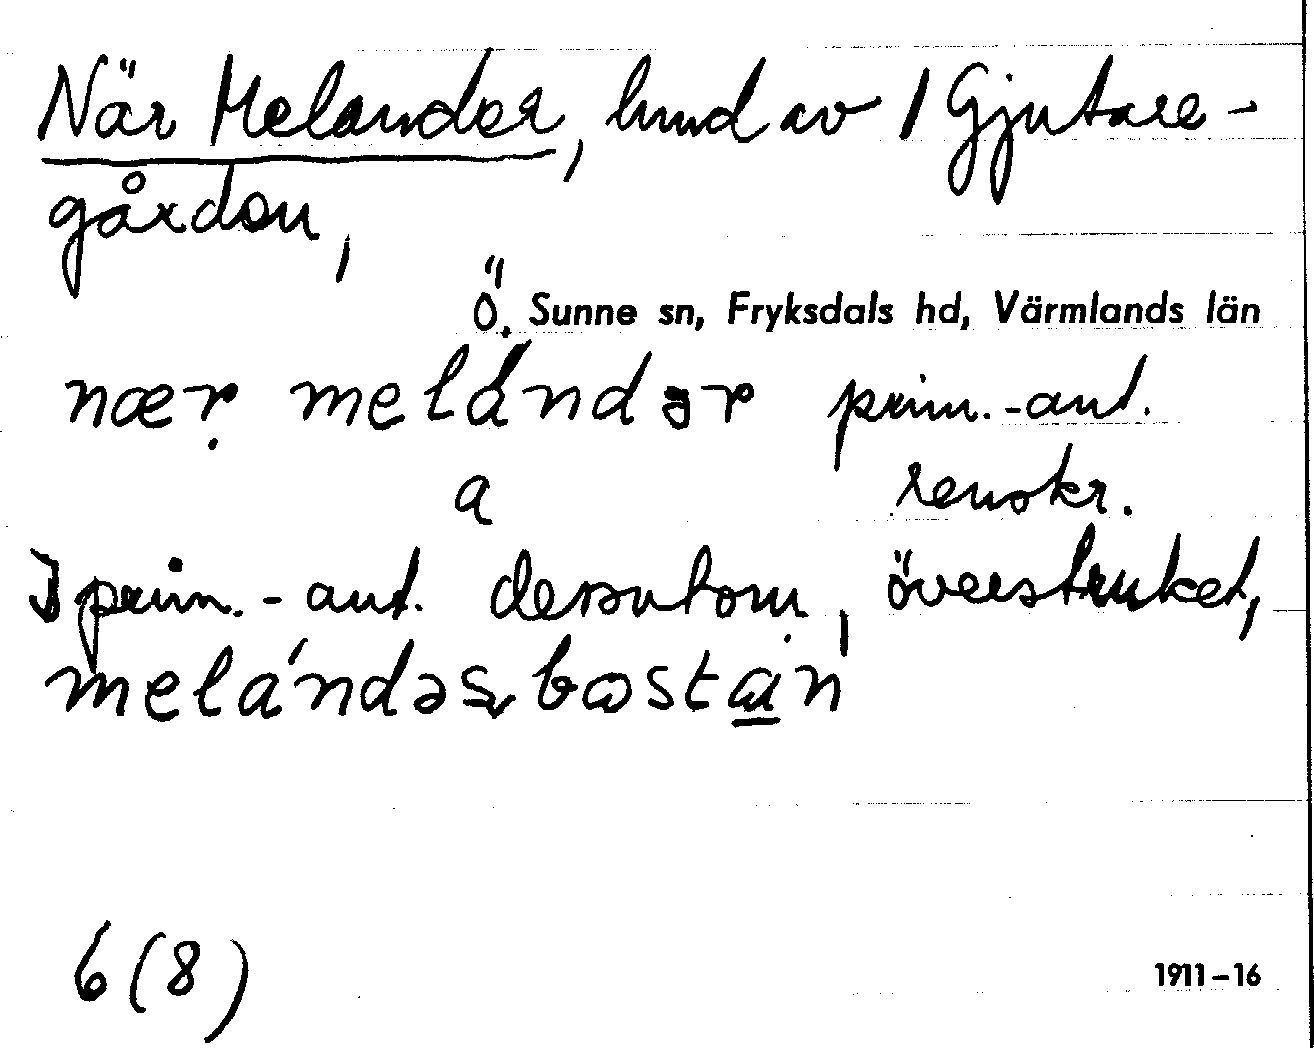 När Melander, lund av / Gjutare-
gården,
Ö. Sunne sn, Fryksdals hd, Värmlands län
næṛ melándər prim.-ant.
a renskr.
I prim.-ant. dessutom, överstruket,
melándəs bostan
6 (8)
1911–16